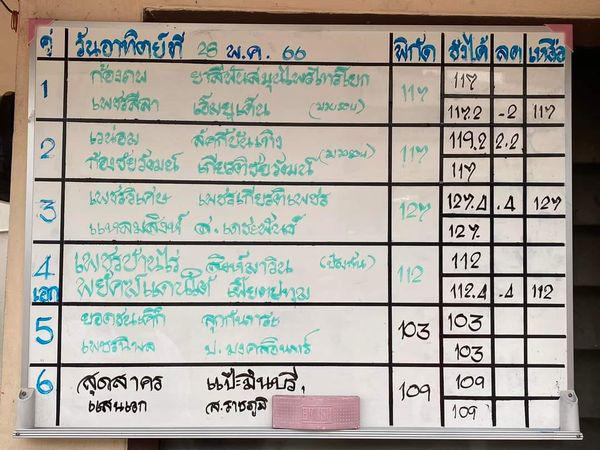 คู่ วันอาทิตย์ที่ 28 พ.ค. 66 พิกัด ชั่งได้ ลด เหลือ
1 ก้องภพ ยาสีฟันสมุนไพรเทวีโยก 117 117
เพชรสีลา เอ็มยูเด็น (มวยรอบ) 117.2 -2 117
2 เวน่อม ลัคกี้บันเทิง 117 119.2 2.2
ก้องชัย เกียรติชัย (มวยรอบ) 117
3 เพชรวิเศษ เพชรเกียรติเพชร 127 127.4 .4 127
แหลมสิงห์ ส.เดชะพันธ์ 127.
4 เพชรบ้านไร่ สิงห์มาวิน (ป้องกัน) 112 112
เอก พยัคฆ์แดนใต้ 112.4 .4 112
5 103 103
เพชรนิพล ป.มงคลอินทร์ 103
6 สุดสาคร แป๊ะมีนบุรี 109 109
แสนเอก (ส.ราชภูมิ 109